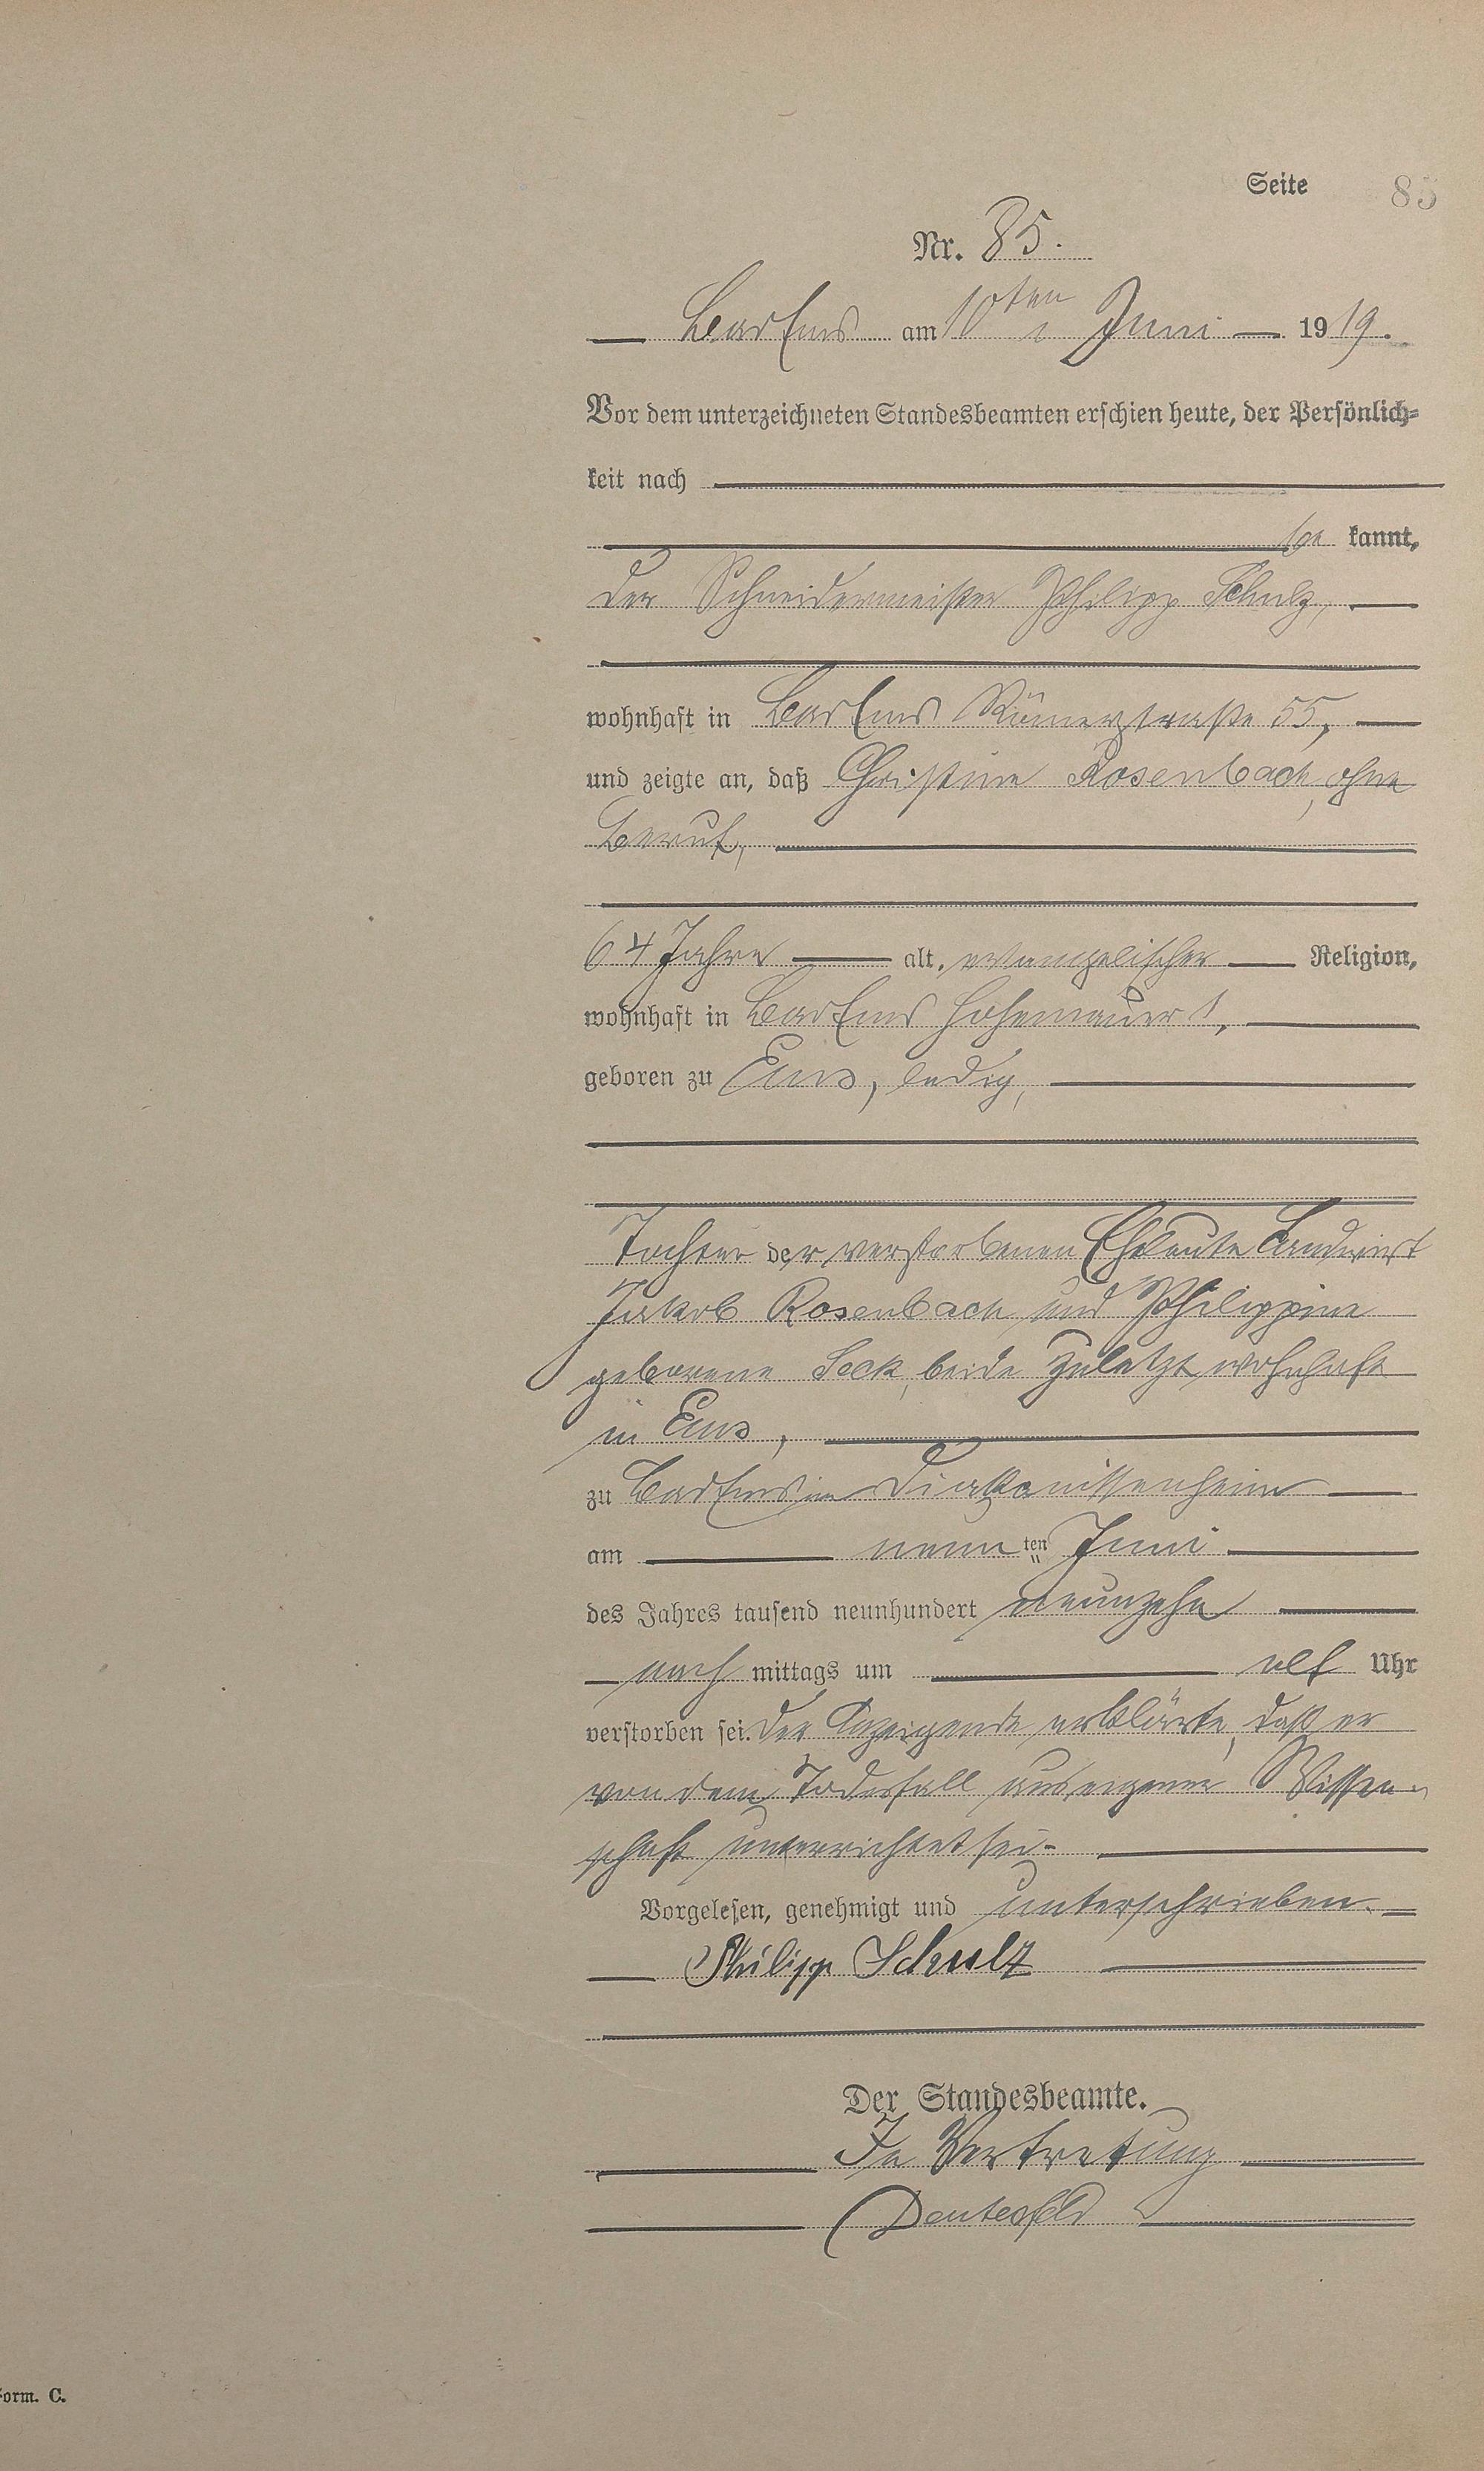 Seite 85
Nr. 85.
Bad Ems am 10ten Juni 1919.
Vor dem unterzeichneten Standesbeamten erschien heute, der Persönlich-
keit nach
be kannt,
der Schneidermeister Philipp Schulz,
wohnhaft in Bad Ems Römerstraße 55,
und zeigte an, daß Christine Rosenbach, ohne
Beruf,
64 Jahre alt, evangelischer Religion,
wohnhaft in Bad Ems Hohemauer 1,
geboren zu Ems, ledig,
Tochter der verstorbenen Eheleute Landwirt
Jakob Rosenbach und Philippine
geborene Seck, beide zuletzt wohnhaft
in Ems,
zu Bad Ems im Diakonissenheim
am neun ten Juni
des Jahres tausend neunhundert neunzehn
nach mittags um elf Uhr
verstorben sei. Der Anzeigende erklärte, daß er
von dem Todesfall aus eigener Wissen-
schaft unterrichtet sei.
Vorgelesen, genehmigt und unterschrieben.
Philipp Schulz
Der Standesbeamte.
In Vertretung
Form. C.